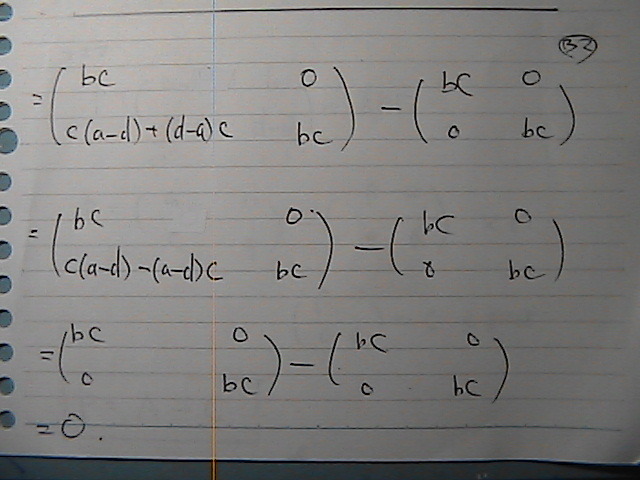 32
= ( bc 0
c(a-d)+(d-a)c bc ) - ( bc 0
0 bc )
= ( bc 0
c(a-d)-(a-d)c bc ) - ( bc 0
0 bc )
= ( bc 0
0 bc ) - ( bc 0
0 bc )
= 0.